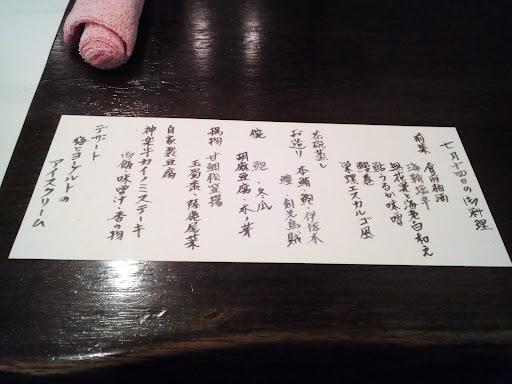 七月十四日の御料理
前菜 食前梅酒
海潮塩辛
無花果・海老白和え
鮎うるか味噌
鰻巻
栄螺エスカルゴ風
茶碗蒸し
お造り 本鮪・鮑・伊佐木
鱧・剣先烏賊
椀 鮑・冬瓜
胡麻豆腐・木ノ芽
揚物 甘鯛松笠揚
玉蜀黍・隠元尾菜
自家製豆腐
神楽牛カイノミステーキ
御飯・味噌汁・香の物
デザート
梅とヨーグルトの
アイスクリーム